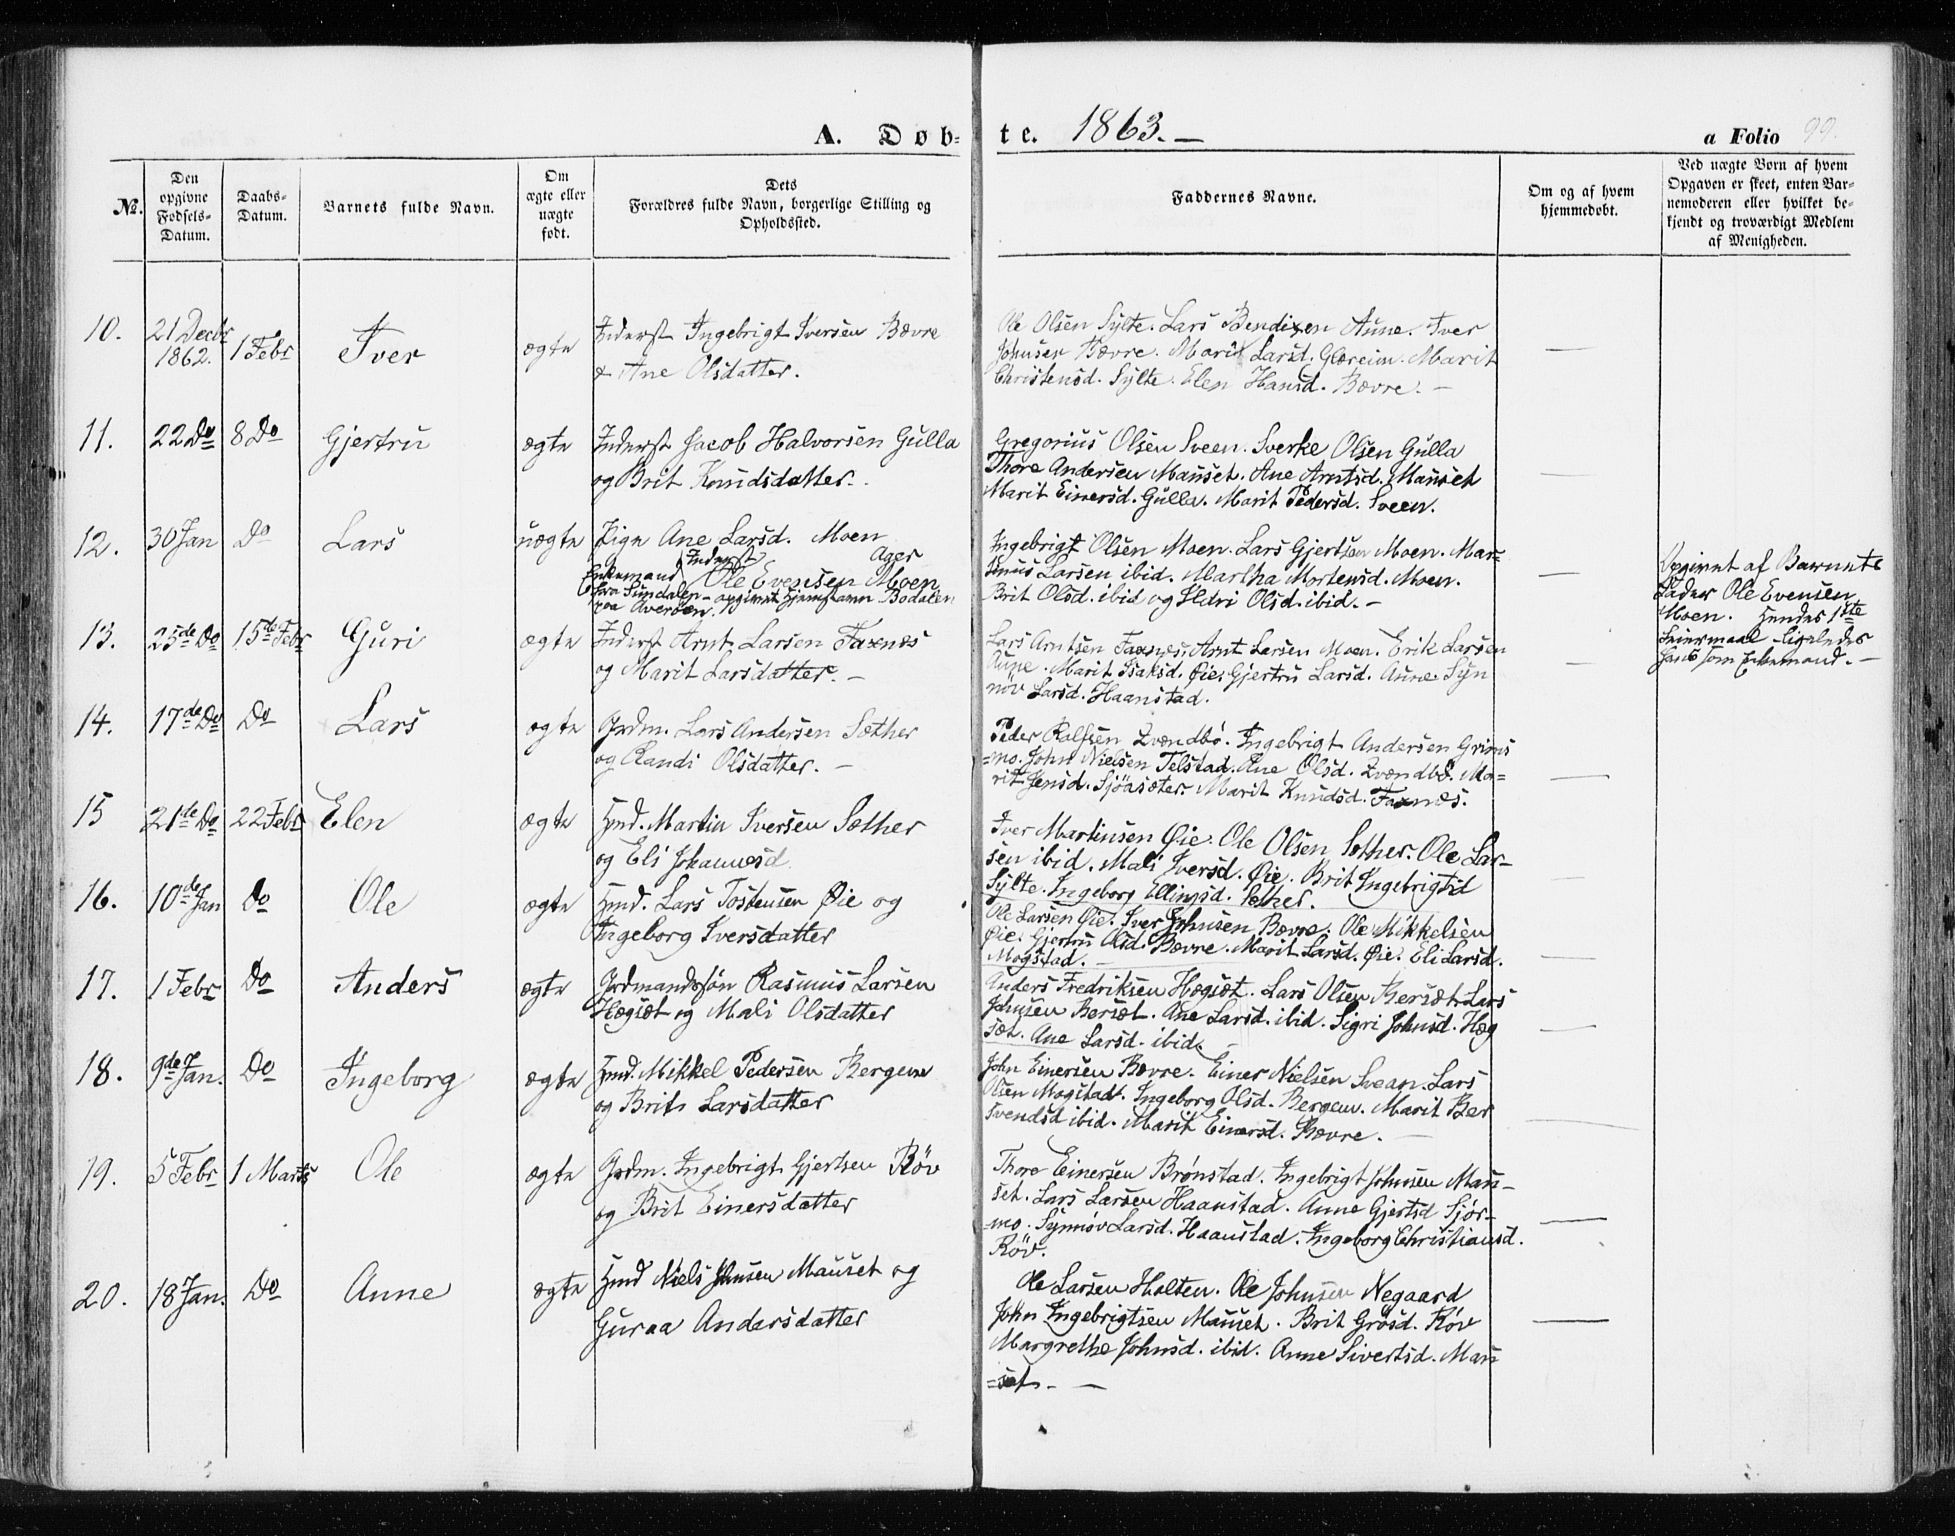 A. Døb-
te. 1863.—
a Folio 99.
№.
Den opgivne Fødsels-Datum.
Daabs-Datum.
Barnets fulde Navn.
Om ægte eller uægte født.
Dets Forældres fulde Navn, borgerlige Stilling og Opholdssted.
Faddernes Navne.
Om og af hvem hjemmedøbt.
Ved uægte Børn af hvem Opgaven er skeet, enten Barnemoderen eller hvilket bekjendt og troværdigt Medlem af Menigheden.
10. 21 Decbr 1862. 1 Febr Iver ægte
Inderst Ingebrigt Iversen Bævre
& Ane Olsdatter.
Ole Olsen Sylte. Lars Bendixen Aune. Iver
Johnsen Bævre. Marit Larsd. Glæreim. Marit
Christensd. Sylte. Elen Hansd. Bævre. —
11. 22 Do 8 Do Gjertru ægte
Inderst Jacob Halvorsen Gulla
og Brit Knudsdatter.
Gregorius Olsen Sveen. Sverke Olsen Gulla
Thore Andersen Mauset. Ane Arntsd. Mauset
Marit Einersd. Gulla. Marit Pedersd. Sveen.
12. 30 Jan Do Lars uægte
Pige Ane Larsd. Moen
Inderst Ager
Enkemand Ole Evensen Moen
fra Sundalen – opgivet Hjemstavn Bodalen
paa Averøen.
Ingebrigt Olsen Moen. Lars Gjertsen Moen. Mar-
tinus Larsen ibid. Martha Mortensd. Moen.
Brit Olsd. ibid og Ildri Olsd. ibid. —
Opgivet af Barnets
Fader Ole Evensen
Moen. Hendes 1ste
Leiermaal ligeledes
hans som Enkemand. —
13. 25de Do 15de Febr Guri ægte
Inderst Arnt Larsen Faxnes
og Marit Larsdatter. —
Lars Arntsen Faxnes. Arnt Larsen Moen. Erik Larsen
Aune. Marit Isaksd. Øie. Gjertru Larsd. Aune. Syn
növ Larsd. Haanstad.
14. 17de Do Do Lars ægte
Grdm. Lars Andersen Sæther
og Randi Olsdatter. —
Peder Rolfsen Zvændbö. Ingebrigt Andersen Grims
=mo. John Nielsen Telstad. Ane Olsd. Zvændbö. Ma=
rit Jensd. Sjöasæter. Marit Knudsd. Faxnæs.
15 21de Do 22 Febr Elen ægte
Hmd. Martin Iversen Sæther
og Eli Johannesd.
Iver Martinsen Øie. Ole Olsen Sæther. Ole Lar-
sen ibid. Mali Iversd. Øie. Brit Ingebrigtsd
Sylte. Ingeborg Ellingsd. Sæther.
16. 10de Jan Do Ole ægte
Hmd. Lars Tostensen Øie og
Ingeborg Iversdatter
Ole Larsen Øie. Iver Johnsen Bævre. Ole Mikkelsen
Øie. Gjertru Olsd. Bævre. Marit Larsd. Øie. Eli Larsd.
Mogstad. —
17. 1 Febr Do Anders ægte
Grdmandssön Rasmus Larsen
Hægsæt og Mali Olsdatter
Anders Fredriksen Hægsæt. Lars Olsen Bersæt. Lars
Johnsen Bersæt. Ane Larsd. ibid. Sigri Johnsd. Hæg
sæt. Ane Larsd. ibid.
18. 9de Jan. Do Ingeborg ægte
Hmd. Mikkel Pedersen Bergem
og Brit Larsdatter
John Einersen Bævre. Einer Nielsen Svean. Lars
Olsen Mogstad. Ingeborg Olsd. Bergem. Marit Ber
Svendsd ibid. Marit Einersd. Bævre. —
19. 5 Febr 1 Marts Ole ægte
Grdm. Ingebrigt Gjertsen Röv
og Brit Einersdatter
Thore Einersen Brønstad. Ingebrigt Johnsen Mau-
set. Lars Larsen Haanstad. Anne Gjertsd Sjör-
=mo. Synnöv Larsd. Haanstad. Ingeborg Christiansd.
Röv.
20. 18 Jan. Do Anne ægte
Hmd Niels Johnsen Mauset og
Guraa Andersdatter
Ole Larsen Holten. Ole Johnsen Negaard
John Ingebrigtsen Mauset. Brit Grösd. Röv
Margrethe Johnsd. ibid. Anne Sivertsd. Mau
=set. — —